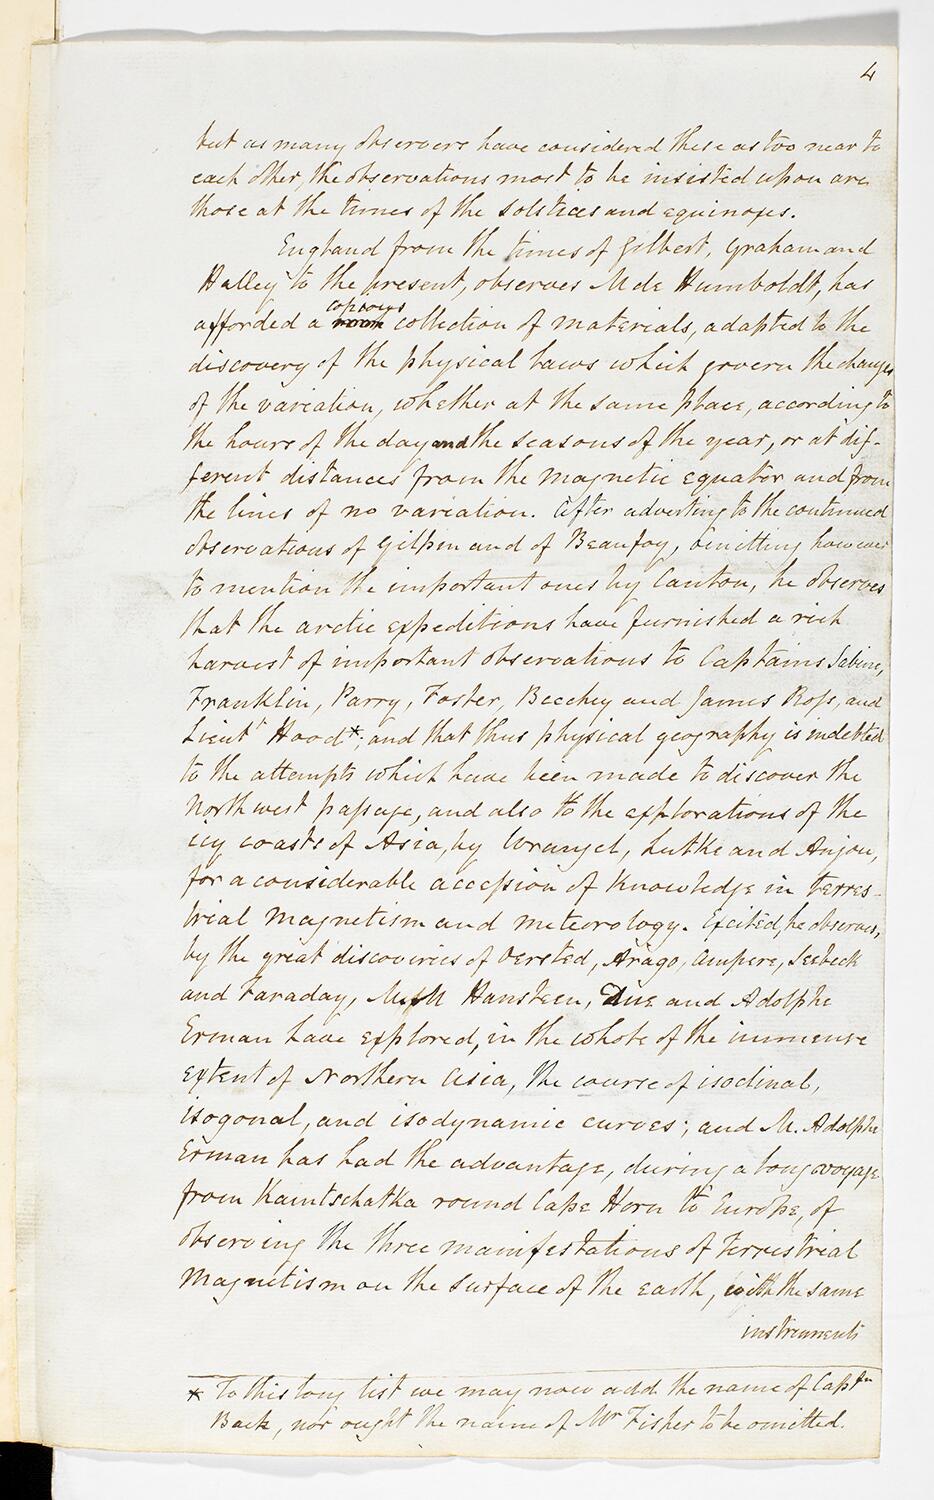 4
but as many observers have considered these as too near to
each other, the observations most to be insisted upon are
those at the times of the solstices and equinoxes.
England from the times of Gilbert, Graham and
Halley to the present, observes M de Humboldt, has
copious
afforded a collection of materials, adapted to the
discovery of the physical laws which govern the changes
of the variation, whether at the same place, according to
the hours of the day and the seasons of the year, or at dif-
ferent distances from the magnetic equator and from
the lines of no variation. After adverting to the continued
observations of Gilpin and of Beaufoy, omitting however
to mention the important ones by Canton, he observes
that the arctic expeditions have furnished a rich
harvest of important observations to Captains Sabine,
Franklin, Parry, Foster, Beechey and James Ross, and
Lieut Hood*; and that thus physical geography is indebted
to the attempts which have been made to discover the
North west passage, and also to the explorations of the
icy coasts of Asia, by Wrangel, Lutke and Anjou,
for a considerable accession of knowledge in terres-
trial magnetism and meteorology. Excited, he observes,
by the great discoveries of Oersted, Arago, Ampere, Seebeck
and Faraday, Hansteen, Due and Adolphe
Erman have explored, in the whole of the immense
extent of Northern Asia, the course of isoclinal,
isogonal, and isodynamic curves; and M. Adolphe
Erman has had the advantage, during a long voyage
from Kamtschatka round Cape Horn to Europe, of
observing the three manifestations of terrestrial
magnetism on the surface of the earth, with the same
instruments
* To this long list we may now add the name of Captn
Back, nor ought the name of Mr Fisher to be omitted.